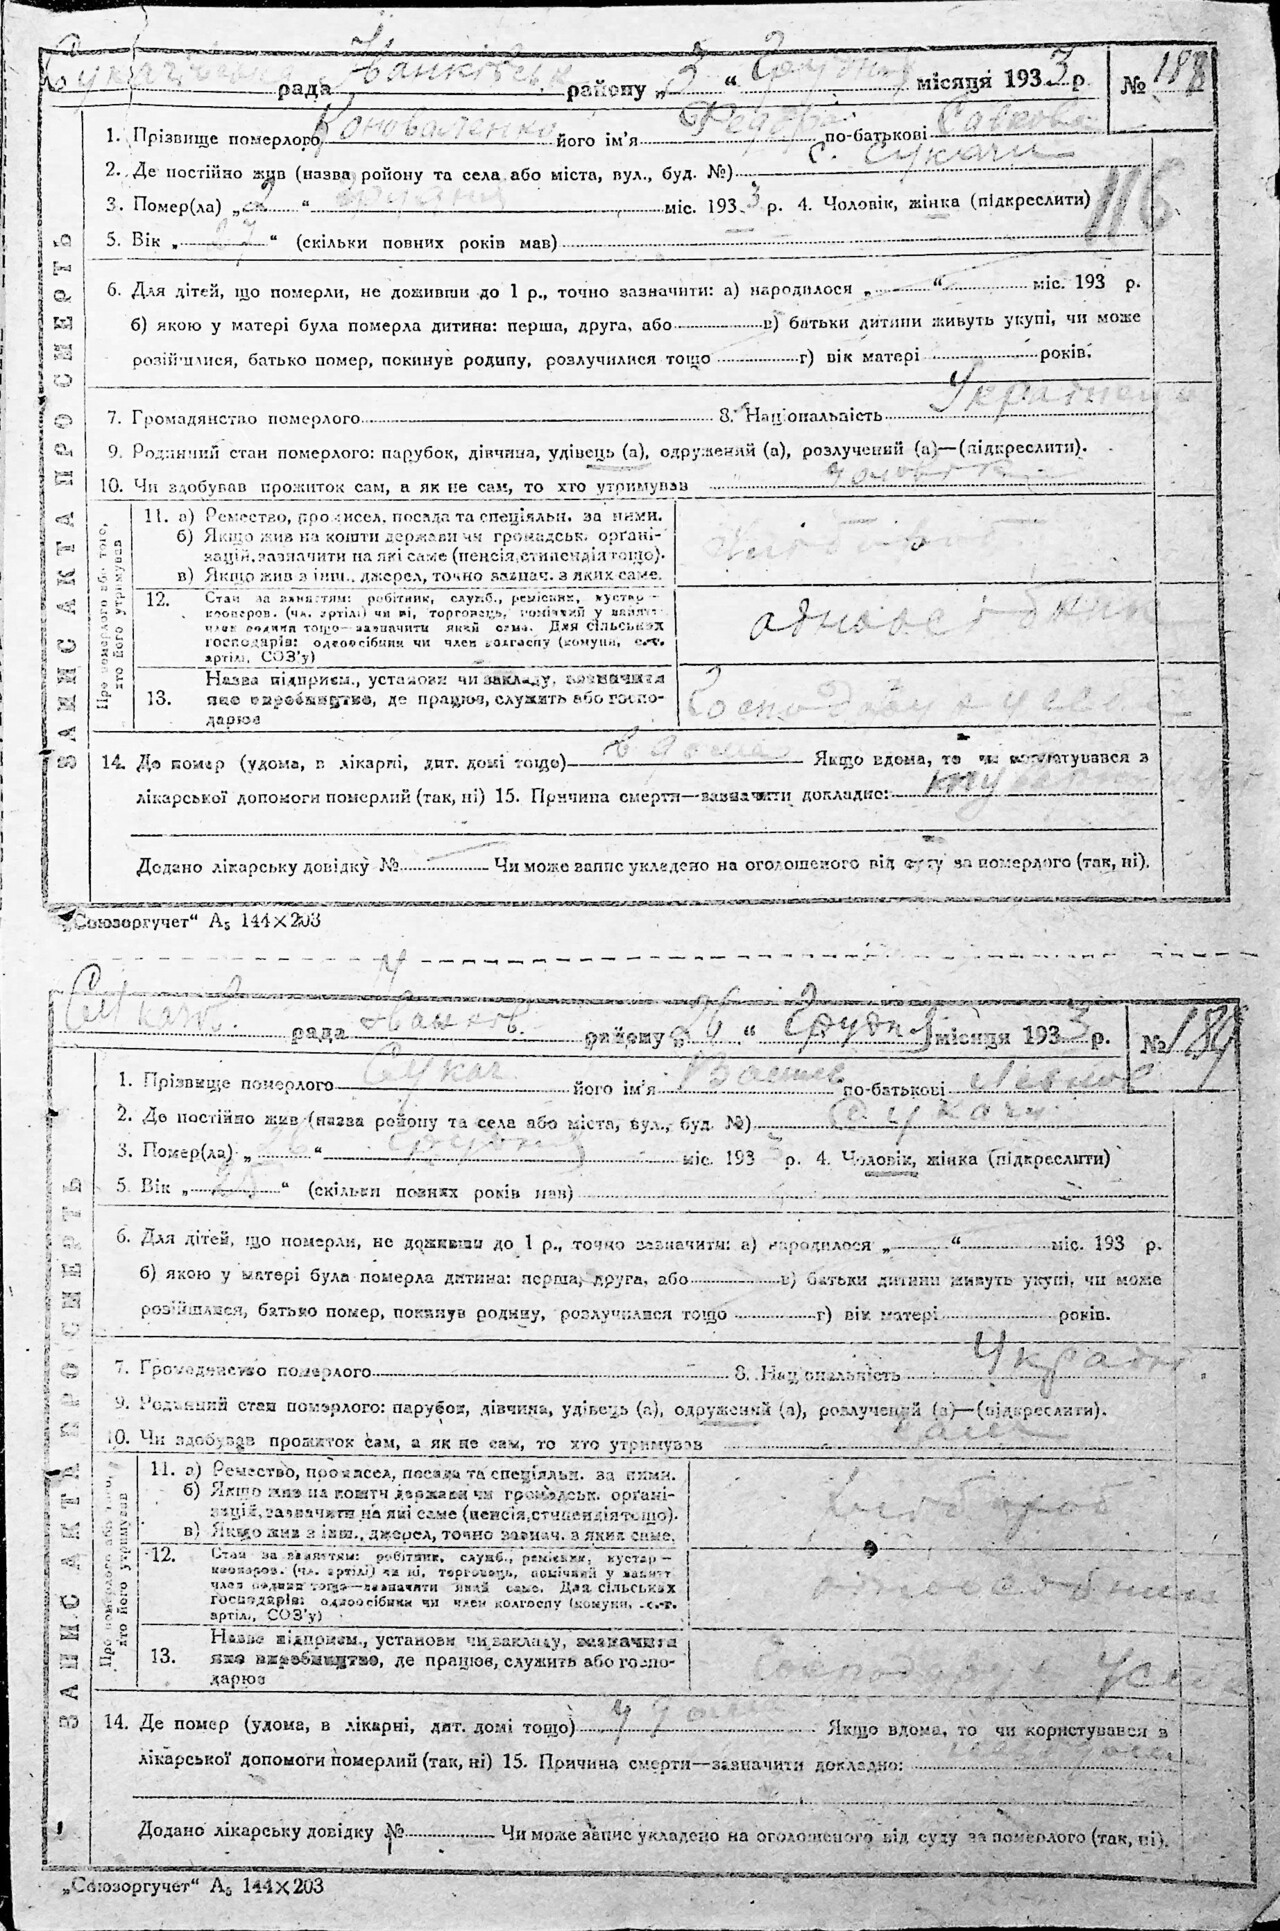 рада Іванківськ району „3 “ Грудня місяця 1933 р. № 188
1. Прізвище померлого Коноваленко його ім'я по-батькові Савкова
2. Де постійно жив (назва ройону та села або міста, вул., буд. №) с. Сукачи
116
3. Помер(ла) „2 “ грудня міс. 1933 р. 4. Чоловік, жінка (підкреслити)
5. Вік „ “ (скільки повних років мав)
6. Для дітей, що померли, не доживши до 1 р., точно зазначити: а) народилося „ “ міс. 193 р.
б) якою у матері була померла дитина: перша, друга, або в) батьки дитини живуть укупі, чи може
розійшлися, батько помер, покинув родину, розлучилися тощо г) вік матері років.
7. Громадянство померлого 8. Національність Українець
9. Родинний стан померлого: парубок, дівчина, удівець (а), одружений (а), розлучений (а)—(підкреслити).
10. Чи здобував прожиток сам, а як не сам, то хто утримував чоловік
ЗАПИС АКТА ПРО СМЕРТЬ
Про померлого або того, хто його утримував
11. а) Ремество, промисел, посада та спеціяльн. за ними.
б) Якщо жив на кошти держави чи громадськ. органі-
зацій, зазначити на які саме (пенсія, стипендія тощо).
в) Якщо жив з інш., джерел, точно зазнач. з яких саме.
хлібороб
12. Стан за заняттям: робітник, служб., реміскик, кустар—
кооперов. (чл. артілі) чи ні, торговець, помічний у занятт
член родини тощо—зазначити який саме. Для сільських
господарів: одноосібник чи член колгоспу (комуни, с.-г.
артілі, СОЗ'у)
одноосібник
13. Назва підприєм., установи чи закладу, зазначити
яке виробництво, де працює, служить або госпо-
дарює
14. Де помер (удома, в лікарні, дит. домі тощо) в дома Якщо вдома, то чи користувався з
лікарської допомоги померлий (так, ні) 15. Причина смерти—зазначити докладно:
Додано лікарську довідку № Чи може запис укладено на оголошеного від суду за померлого (так, ні).
„Союзоргучет“ А₅ 144×203
Сукачів. рада Іванков. району „26 “ Грудня місяця 1933 р. № 189
1. Прізвище померлого Сукач його ім'я Василь по-батькові
2. Де постійно жив (назва ройону та села або міста, вул., буд. №) Сукачи
3. Помер(ла) „26 “ грудня міс. 1933 р. 4. Чоловік, жінка (підкреслити)
5. Вік „ “ (скільки повних років мав)
6. Для дітей, що померли, не доживши до 1 р., точно зазначити: а) народилося „ “ міс. 193 р.
б) якою у матері була померла дитина: перша, друга, або в) батьки дитини живуть укупі, чи може
розійшлися, батько помер, покинув родину, розлучилися тощо г) вік матері років.
7. Громадянство померлого 8. Національність Україн.
9. Родинний стан померлого: парубок, дівчина, удівець (а), одружений (а), розлучений (а)—(підкреслити).
10. Чи здобував прожиток сам, а як не сам, то хто утримував
ЗАПИС АКТА ПРО СМЕРТЬ
Про померлого або того, хто його утримував
11. а) Ремество, промисел, посада та спеціяльн. за ними.
б) Якщо жив на кошти держави чи громадськ. органі-
зацій, зазначити на які саме (пенсія, стипендія тощо).
в) Якщо жив з інш., джерел, точно зазнач. з яких саме.
Хлібороб
12. Стан за заняттям: робітник, служб., реміскик, кустар—
кооперов. (чл. артілі) чи ні, торговець, помічний у занятт
член родини тощо—зазначити який саме. Для сільських
господарів: одноосібник чи член колгоспу (комуни, с.-г.
артілі, СОЗ'у)
одноосібник
13. Назва підприєм., установи чи закладу, зазначити
яке виробництво, де працює, служить або госпо-
дарює
14. Де помер (удома, в лікарні, дит. домі тощо) у дома Якщо вдома, то чи користувався з
лікарської допомоги померлий (так, ні) 15. Причина смерти—зазначити докладно:
Додано лікарську довідку № Чи може запис укладено на оголошеного від суду за померлого (так, ні).
„Союзоргучет“ А₅ 144×203